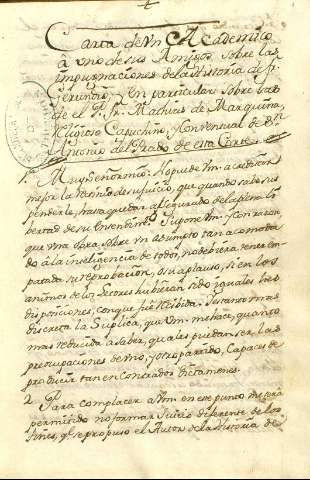 Carta de Vn Academico
à uno de sus Amigos sobre las
impugnaciones de la Historia de fr.
Gerundio, y en particular sobre la
de el P. Fr. Mathias de Marquina,
Religioso Capuchino, Conventual de Sn.
Antonio del Prado de esta Corte.
1. Muy Señor mio: No puede Vm. acreditar
mejor lo recto de su juicio, que quando sabe sus
penderle, hasta quedar assegurado de la
de su Supone Vm. con razon,
que una obra sobre Vn asumpto tan acomoda
do à la inteligencia de todos, no debiera tener con
su reprobacion, ò su aplauso, si en los
animos de los Lectores hubieran sido iguales las
disposiciones, con que fuè recibida. es mas
discreta la Suplica, que Vm. me hace, quanto
mas reducida à saber, quales puedan ser las
preocupaciones de uno, y otro partido, Capaces de
producir tan encontrados dictamenes.
2. Para complacer à Vm. en este punto me serà
permitido no formar Juicio diferente de los
fines, qe. se propuso el Autor de la Historia de